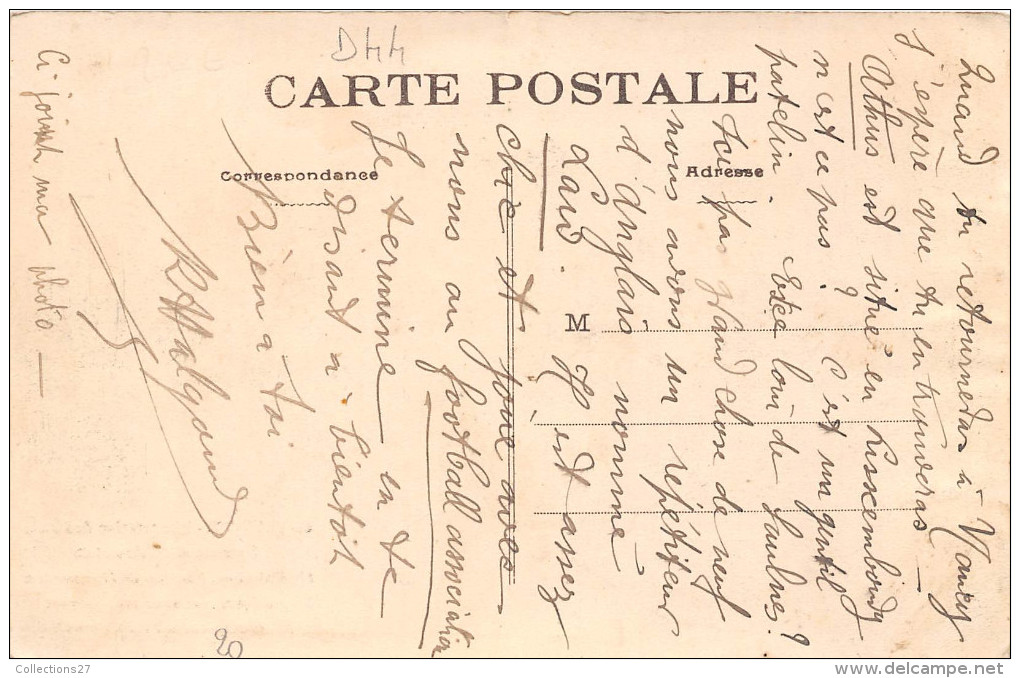 D44
CARTE POSTALE
Correspondance
Adresse
M
Quand tu retourneras à Nancy
j'espère que tu en trouveras —
Athus est situé en Luxembourg
n'est ce pas ? C'est un gentil
patelin. Estce loin de Saulnes ?
pas grand chose de neuf
nous avons un répétiteur
d'Anglais nommé
Laid. Il est assez
chic et joue avec
nous au football association
Je termine en te
disant à bientôt
Bien à toi
Ci joint ma photo —
20
Collections27
delcampe.net